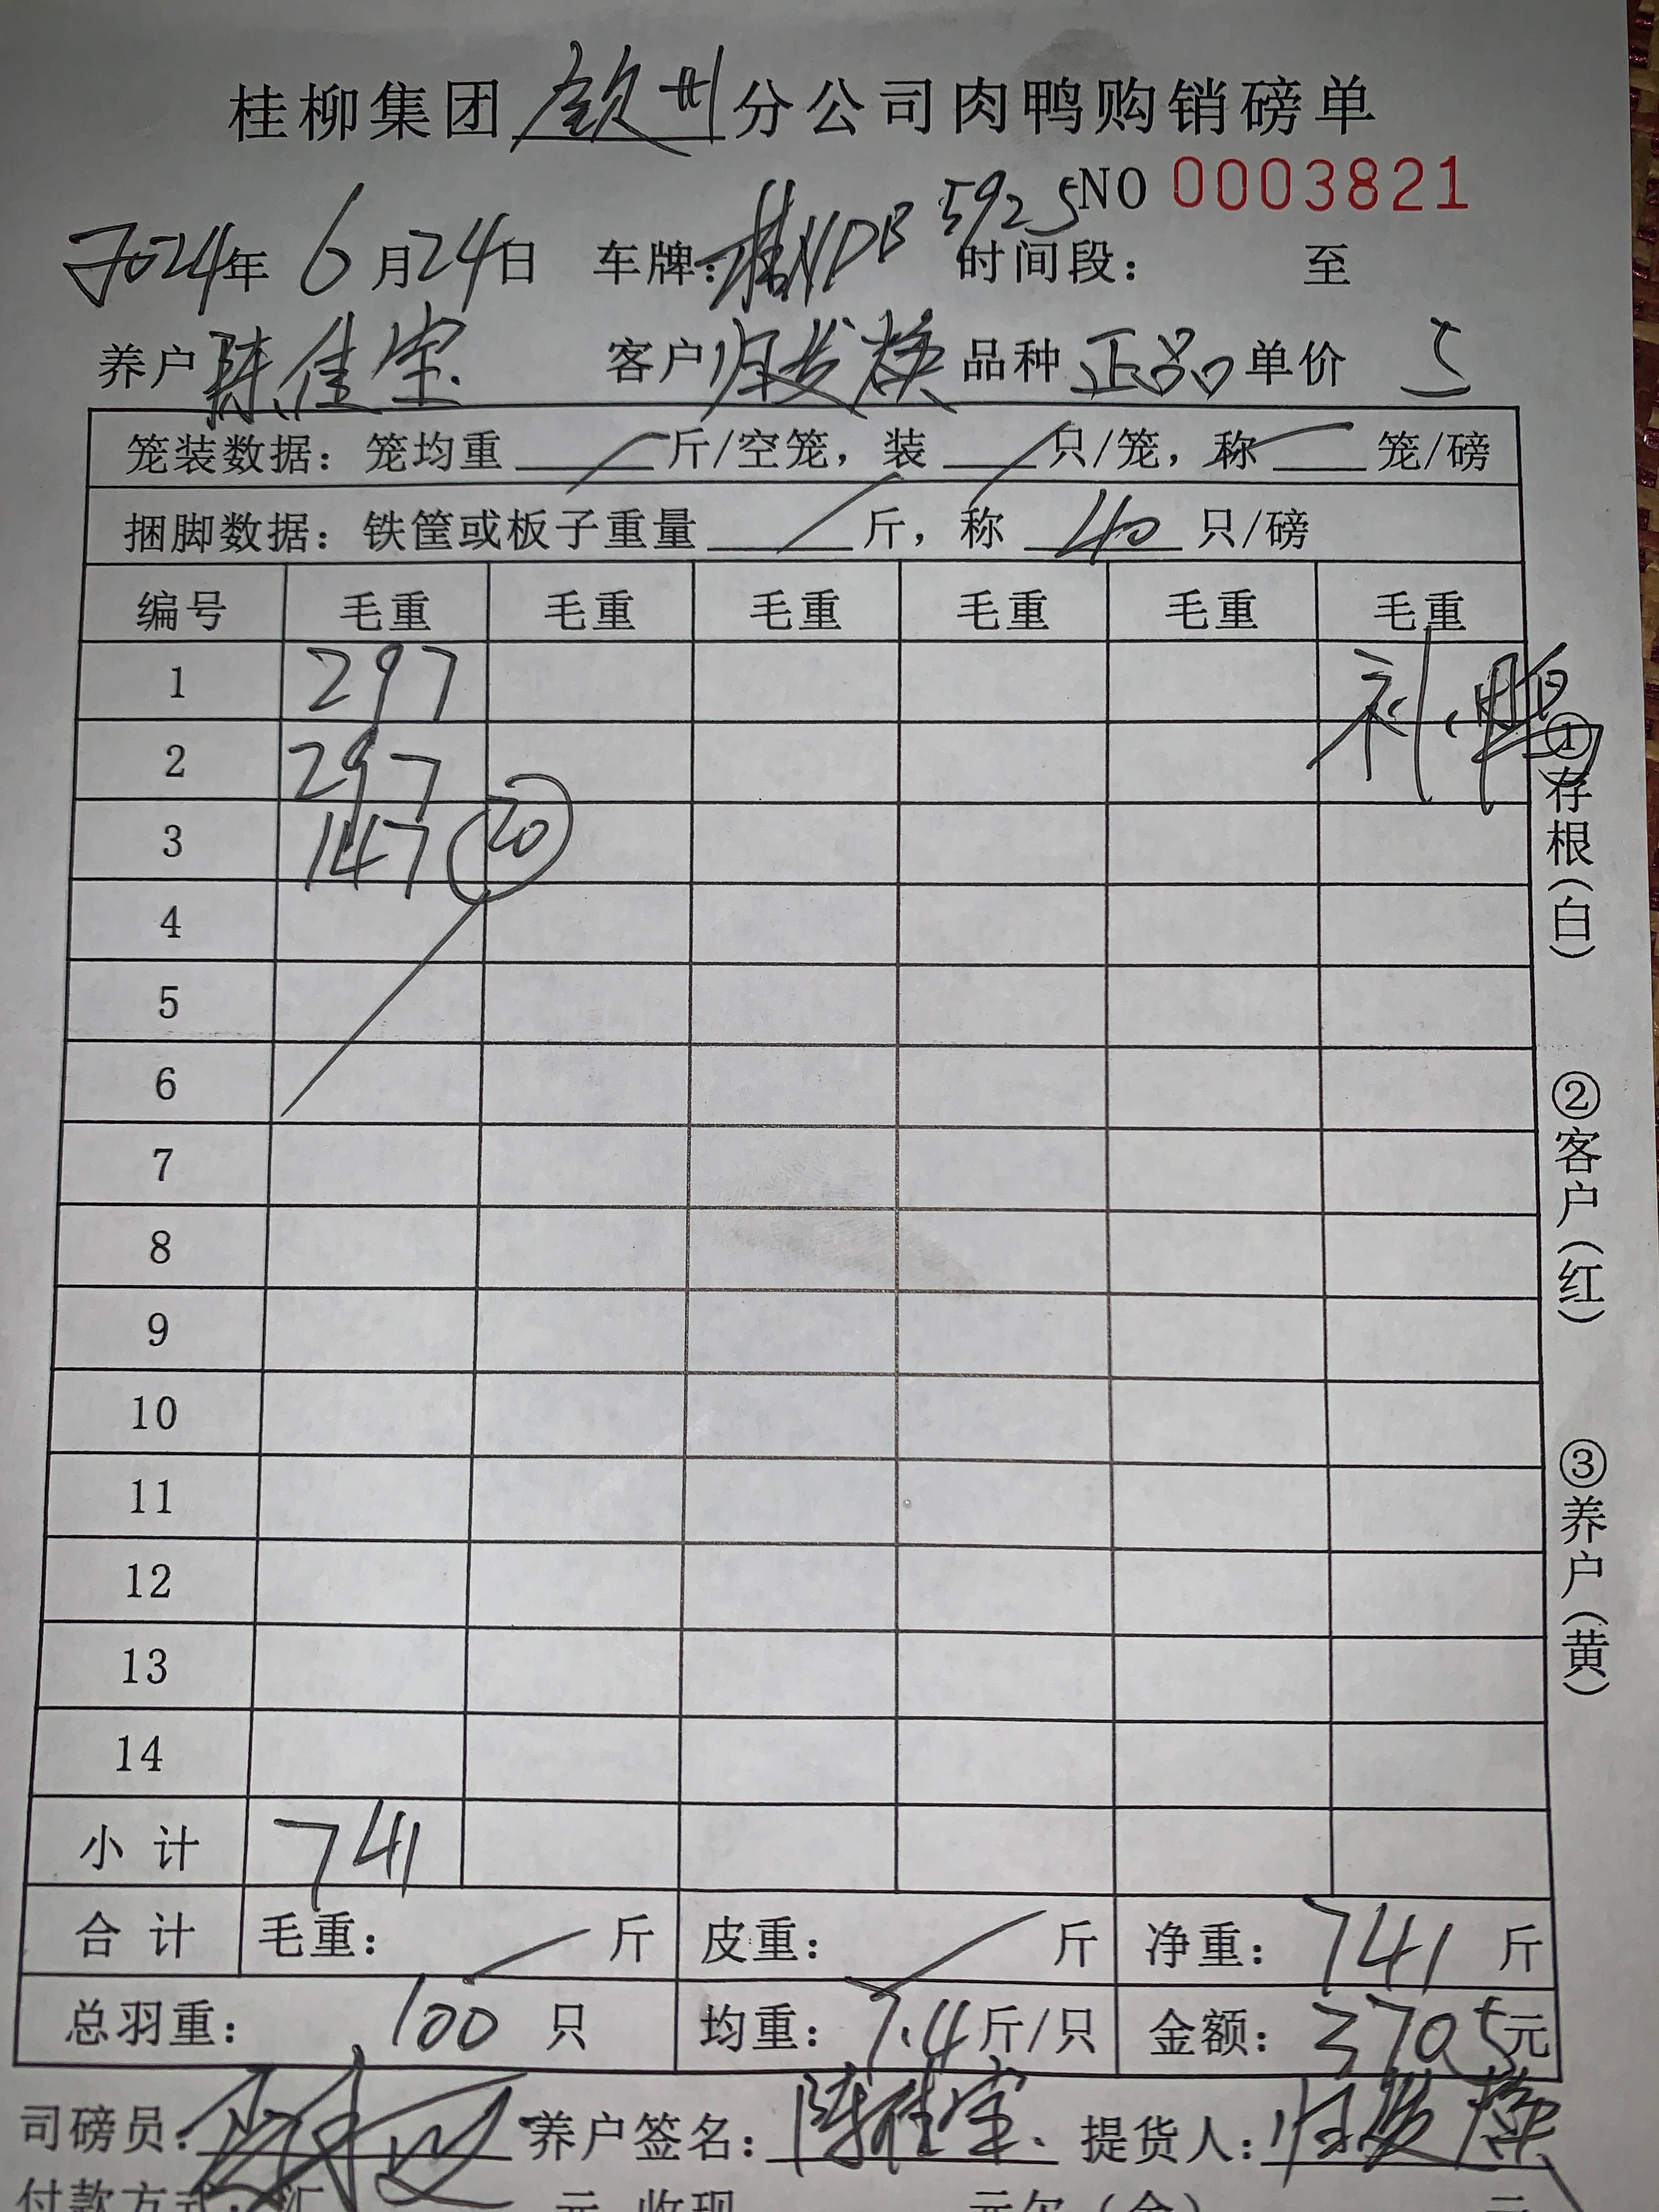 桂柳集团钦州分公司肉鸭购销磅单
NO 0003821
2024年6月24日 车牌:桂NDB5925 时间段: 至
养户 陈佳宝 客户 归发 品种 正品 单价 5
笼装数据:笼均重 斤/空笼,装 只/笼,称 笼/磅
捆脚数据:铁筐或板子重量 斤,称 40 只/磅
编号 毛重 毛重 毛重 毛重 毛重 毛重
1 297 补鸭
2 297
3 147 20
4
5
6
7
8
9
10
11
12
13
14
小计 741
合计 毛重: 斤 皮重: 斤 净重:741 斤
总羽重: 100 只 均重:7.4斤/只 金额:3705元
司磅员: 养户签名:陈佳宝 提货人:归发
付款方式:汇 元 收现 元欠(余) 元
①存根(白)
②客户(红)
③养户(黄)